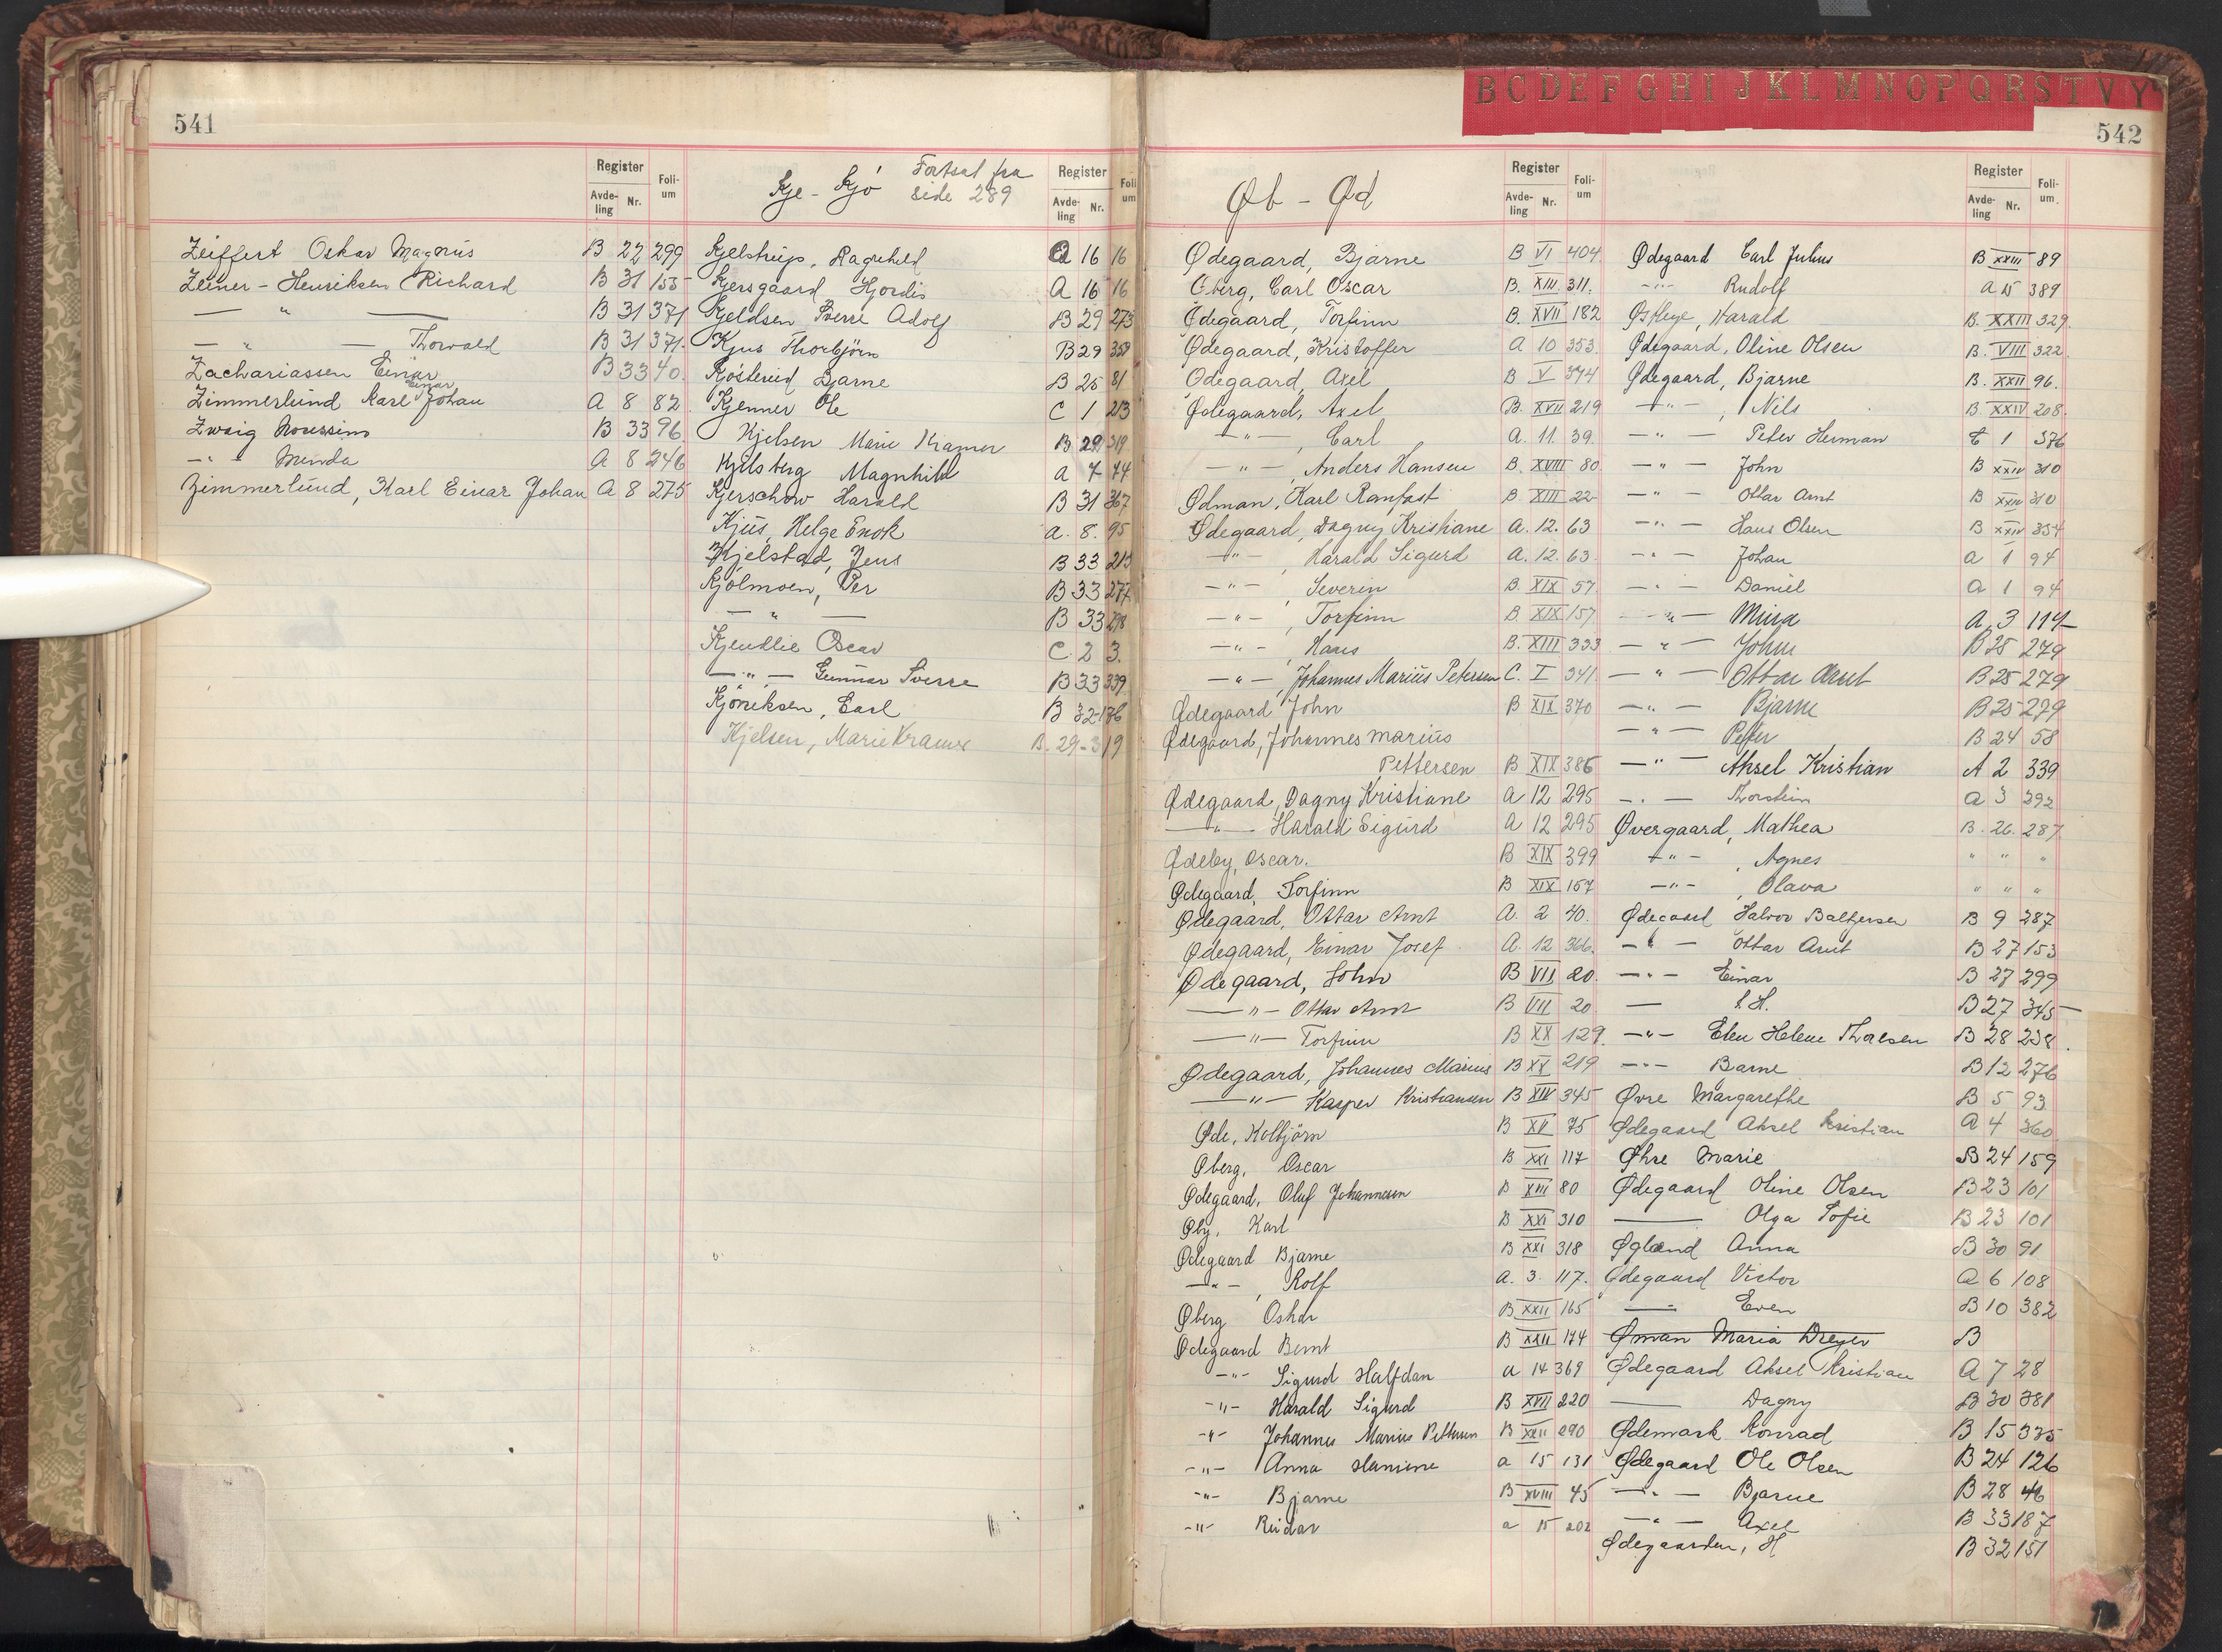 541
Register
Avde-
ling
Nr.
Foli-
um
Zeiffert Oskar Magnus B 22 299
Zeiner - Henriksen Richard B 31 155
— " — B 31 371
— " — Thorvald B 31 371
Zachariassen Einar B 33 40
Einar
Zimmerlund Karl Johan A 8 82
Zwaig B 33 96
— " — Menda A 8 246
Zimmerlund, Karl Einar Johan A 8 275
Kje - Kjö Fortsat fra
side 289
Register
Avde-
ling
Nr.
Foli
um
Kjelstrup, Ragnhild A 16 16
Kjersgaard Hjordis A 16 16
Kjeldsen Sverre Adolf B 29 273
Kjus Thorbjörn B 29 358
Bjarne B 25 81
Kjenner Ole C 1 213
Kjelsen Marie Kramer B 29 319
Kjelsberg Magnhild A 7 44
Kjerschow Harald B 31 367
Kjus, Helge Enok A. 8. 95
Kjelstad, Jens B 33 215
Kjölmoen, Per B 33 277
— " — B 33 298
Kjendlie Oscar C. 2 3.
— " — Gunnar Sverre B 33 339
Kjönriksen, Earl B 32 176
Kjelsen, Marie Kramer B. 29 - 319
B C D E F G H I J K L M N O P Q R S T V Y
542
Øb - Ød
Register
Avde-
ling
Nr.
Foli-
um
Ødegaard, Bjarne B VI 404
Øberg, Carl Oscar B. XIII 311.
Ødegaard, Torfinn B. XVII 182
Ødegaard, Kristoffer A 10 353.
Ødegaard, Axel B V 374
Ødegaard, Axel B. XVII 219
— " — , Carl A. 11. 39.
— " — , Anders Hansen B. XVIII 80
Ødman, Karl Ranfast B. XIII 22
Ødegaard, Dagny Kristiane A. 12. 63
— " — , Harald Sigurd A. 12. 63.
— " — , Severin B. XIX 57.
— " — , Torfinn B. XIX 157
— " — , Hans B. XIII 333
— " — , Johannes Marius Petersen C. I 341
Ødegaard John B XIX 370
Ødegaard, Johannes Marius
Pettersen B XIX 386
Ødegaard, Dagny Kristiane A 12 295
— " — Harald Sigurd A 12 295
Ødeby, Oscar. B XIX 399
Ødegaard, Torfinn B XIX 157
Ødegaard, Ottar Arnt A. 2 40.
Ødegaard, Einar Josef A. 12 366.
Ødegaard, John B VII 20.
— " — Ottar Arnt B VII 20
— " — Torfinn B XX 129.
Ødegaard, Johannes Marius B XX 219
— " — Kasper Kristiansen B XIV 345
Øde, Kolbjörn B XV 75
Øberg, Oscar B XXI 117
Ødegaard, Oluf Johannesen B XIII 80
Øby, Karl B XXI 310
Ødegaard Bjarne B XXI 318
— " — , Rolf A. 3. 117.
Øberg Oskar B XXII 165
Ødegaard Bernt B XXII 174
— " — Sigurd Halfdan A 14 369
— " — Harald Sigurd B XVII 220
— " — Johannes Marius Pettersen B XXII 290
— " — Anna Hansine A 15 131
— " — Bjarne B XVIII 45
— " — Reidar A 15 202
Register
Avde-
ling
Nr.
Foli-
um
Ødegaard Carl Julius B XXIII 89
— " — Rudolf A 15 389
Østbye, Harald B. XXIII 329.
Ødegaard, Oline Olsen B. VIII 322
Ødegaard, Bjarne B. XXII 96.
— " — , Nils B. XXIV 208.
— " — Peter Herman C 1 376
— " — John B XXIV 310
— " — Ottar Arnt B XXIV 310
— " — Hans Olsen B XXIV 354
— " — Johan A 1 94
— " — Daniel A 1 94
— " — Mina A. 3 114
— " — John B 25 279
— " — Ottar Arnt B 25 279
— " — Bjarne B 25 279
— " — Petter B 24 58
— " — Aksel Kristian A 2 339
— " — Thorstein A 3 292
Øvergaard, Mathea B. 26. 287
— " — , Agnes " " "
— " — , Olava " " "
Ødegaard Halvor Baltzersen B 9 287
— " — Ottar Arnt B 27 153
— " — Einar B 27 299
— H. B 27 345
— " — Elen Helene Thoresen B 28 238.
— " — Barne B 12 276
Øvre Margarethe B 5 93
Ødegaard Aksel Kristian A 4 360
Øhre Marie B 24 159
Ødegaard Oline Olsen B 23 101
— Olga Sofie B 23 101
Øgland Anna B 30 91
Ødegaard Victor A 6 108
— " — Even B 10 382
Øman Maria Dreyer B
Ødegaard Aksel Kristian A 7 28
— Dagny B 30 381
Ødemark Konrad B 15 335
Ødegaard Ole Olsen B 24 126
— " — Bjarne B 28 46
— " — Axel B 33 187
Ødegaarden, H B 32 151